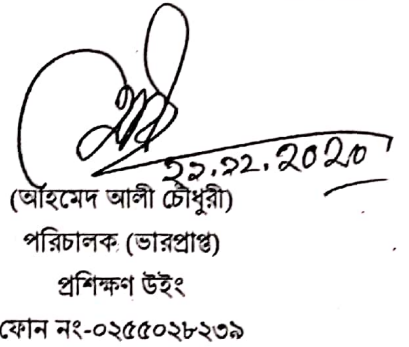 ২১.১২.2020
(আহমেদ আলী চৌধুরী)
পরিচালক (ভারপ্রাপ্ত)
প্রশিক্ষণ উইং
ফোন নং-০২৫৫০২৮২৩৯